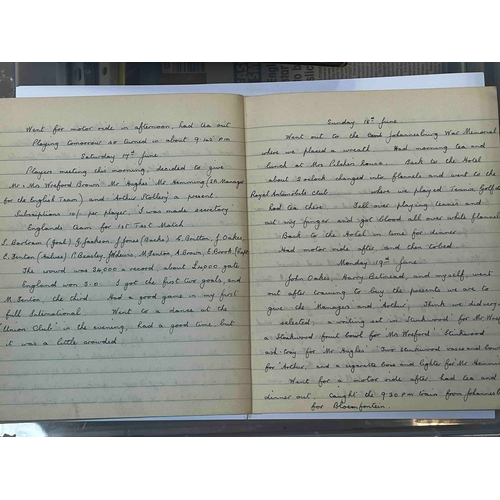 Went for motor ride in afternoon, had tea out
Playing tomorrow so turned in about 9.45 P.M
Saturday 17th June.
Players meeting this morning, decided to give
Mr & Mrs Wreford Brown Mr Hughes Mr Hemming (S.A. Manager
for the English Team) and Arthur Stollery a present
Subscriptions 10/- per player. I was made secretary
Englands team for 1st Test Match
S. Bartram (Goal) G. Jackson J. Jones (Backs) C. Britton, J. Oakes,
E. Fenton (Halves) P. Beasley, J. Lewis, M. Fenton, A. Brown, E. Brook (Capt
The crowd was 24000 a record, about gate
England won 3.0. I got the first two goals, and
M. Fenton, the third. Had a good game in my first
full International Went to a dance at the
Union Club in the evening, had a good time, but
it was a little crowded
Sunday 18th June
Went out to the Johannesburg War Memorial
where we placed a wreath. Had morning tea and
lunch at Mrs house. Back to the Hotel
about 3 oclock changed into flannels and went to the
Royal Automobile Club where we played Tennis, Golf &
had tea there. Fell over playing tennis and
cut my finger and got blood all over white flannels
Back to the Hotel in time for dinner
Had motor ride after and then to bed.
Monday 19th June
John Oakes, Harry Betmead, and myself, went
out after training to buy the presents we are to
give the Managers and Arthur. Think we did very
selected, a writing set in Stinkwood for Mr Wref
a Stinkwood fruit bowl for Mrs Wreford Stinkwood
ash tray for Mr Hughes Two Stinkwood vases and bowl
for Arthur, and a cigarette box and lighter for Mr Hemming
Went for a motor ride after, had tea and
dinner out. Caught the 9.30 P.M train from Johannesb
for Bloemfontein.